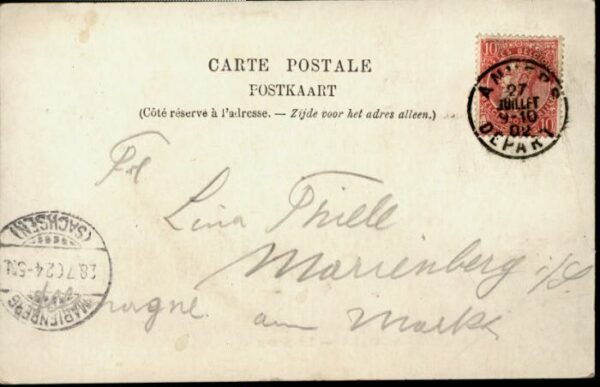 CARTE POSTALE
POSTKAART
(Côté réservé à l'adresse. — Zijde voor het adres alleen.)
10 10
ANVERS
27
JUILLET
9-10
02
DEPART
10
Lina Thiele
Marienberg i/S.
am Markt
(SACHSEN)
28.7.02 4-5N
MARIENBERG